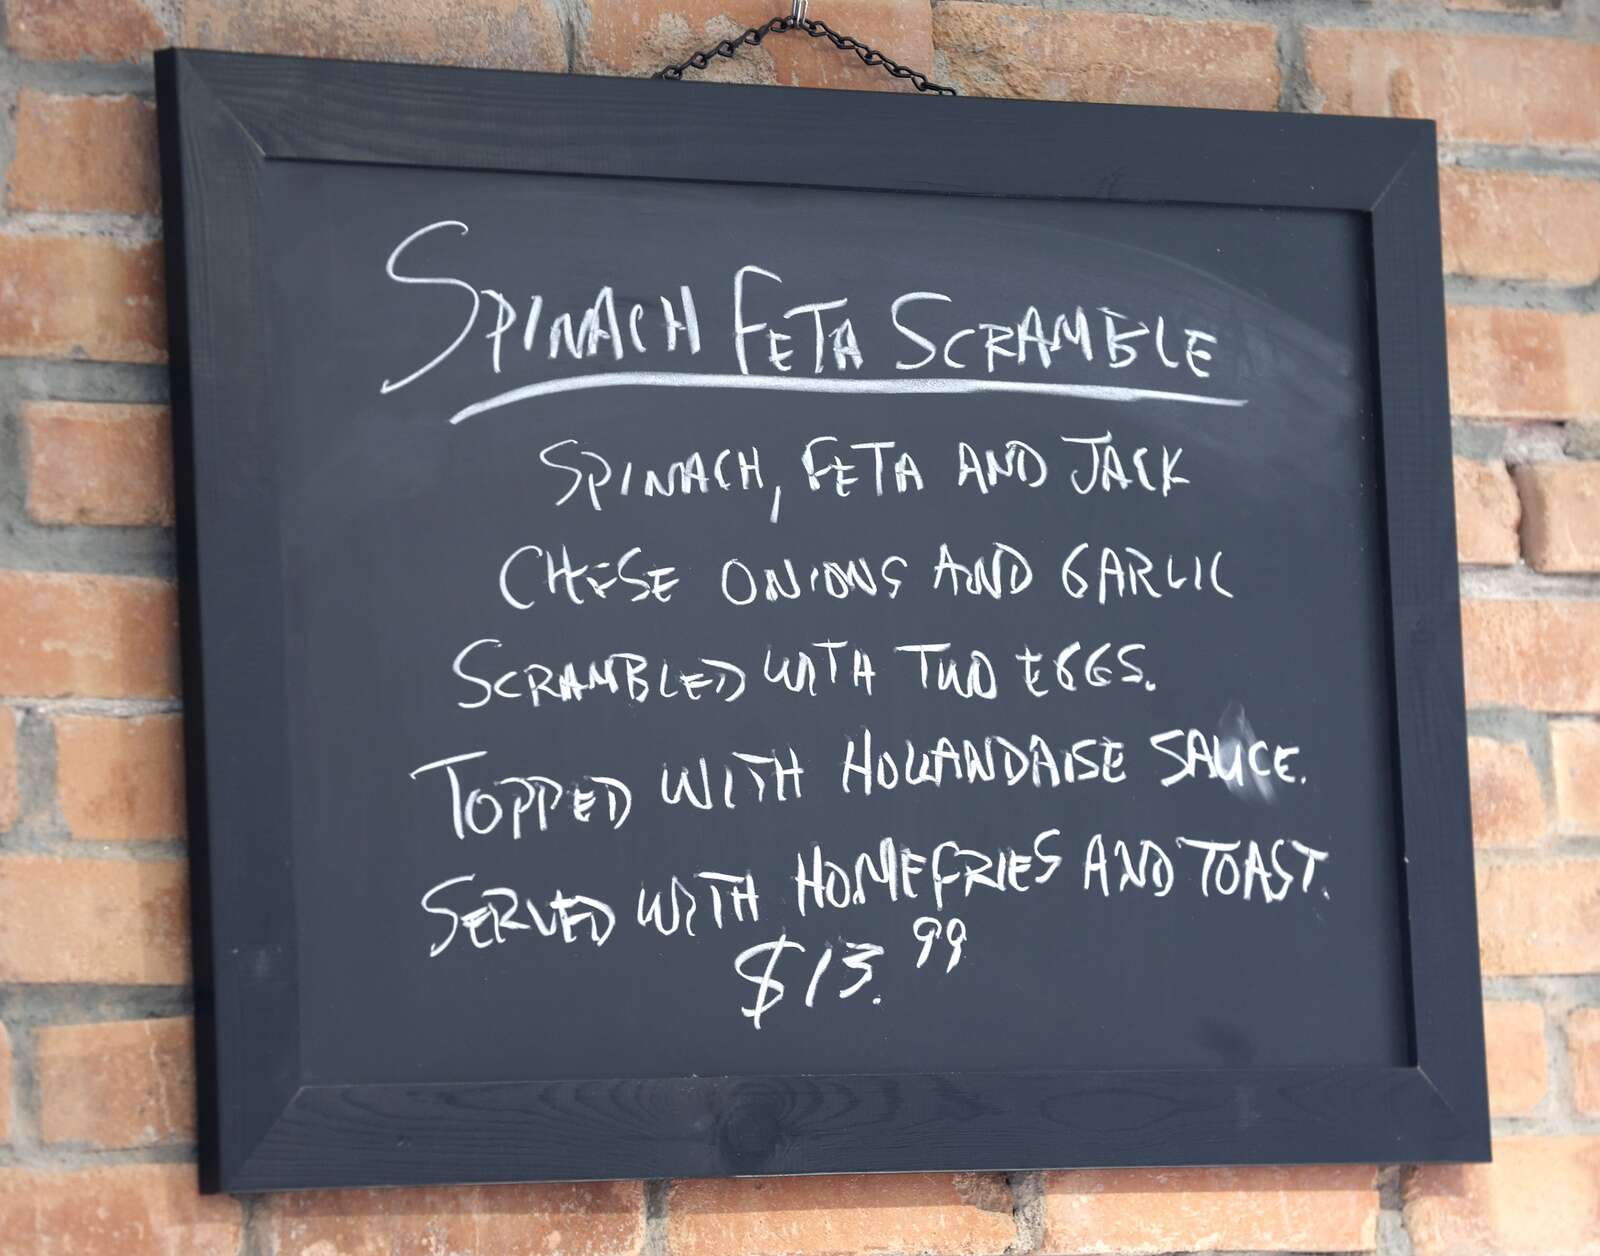 SPINACH FETA SCRAMBLE
SPINACH, FETA AND JACK
CHESE ONIONS AND GARLIC
SCRAMBLED WITH TWO EGGS.
TOPPED WITH HOLLANDAISE SAUCE.
SERVED WITH HOMEFRIES AND TOAST.
$13.99